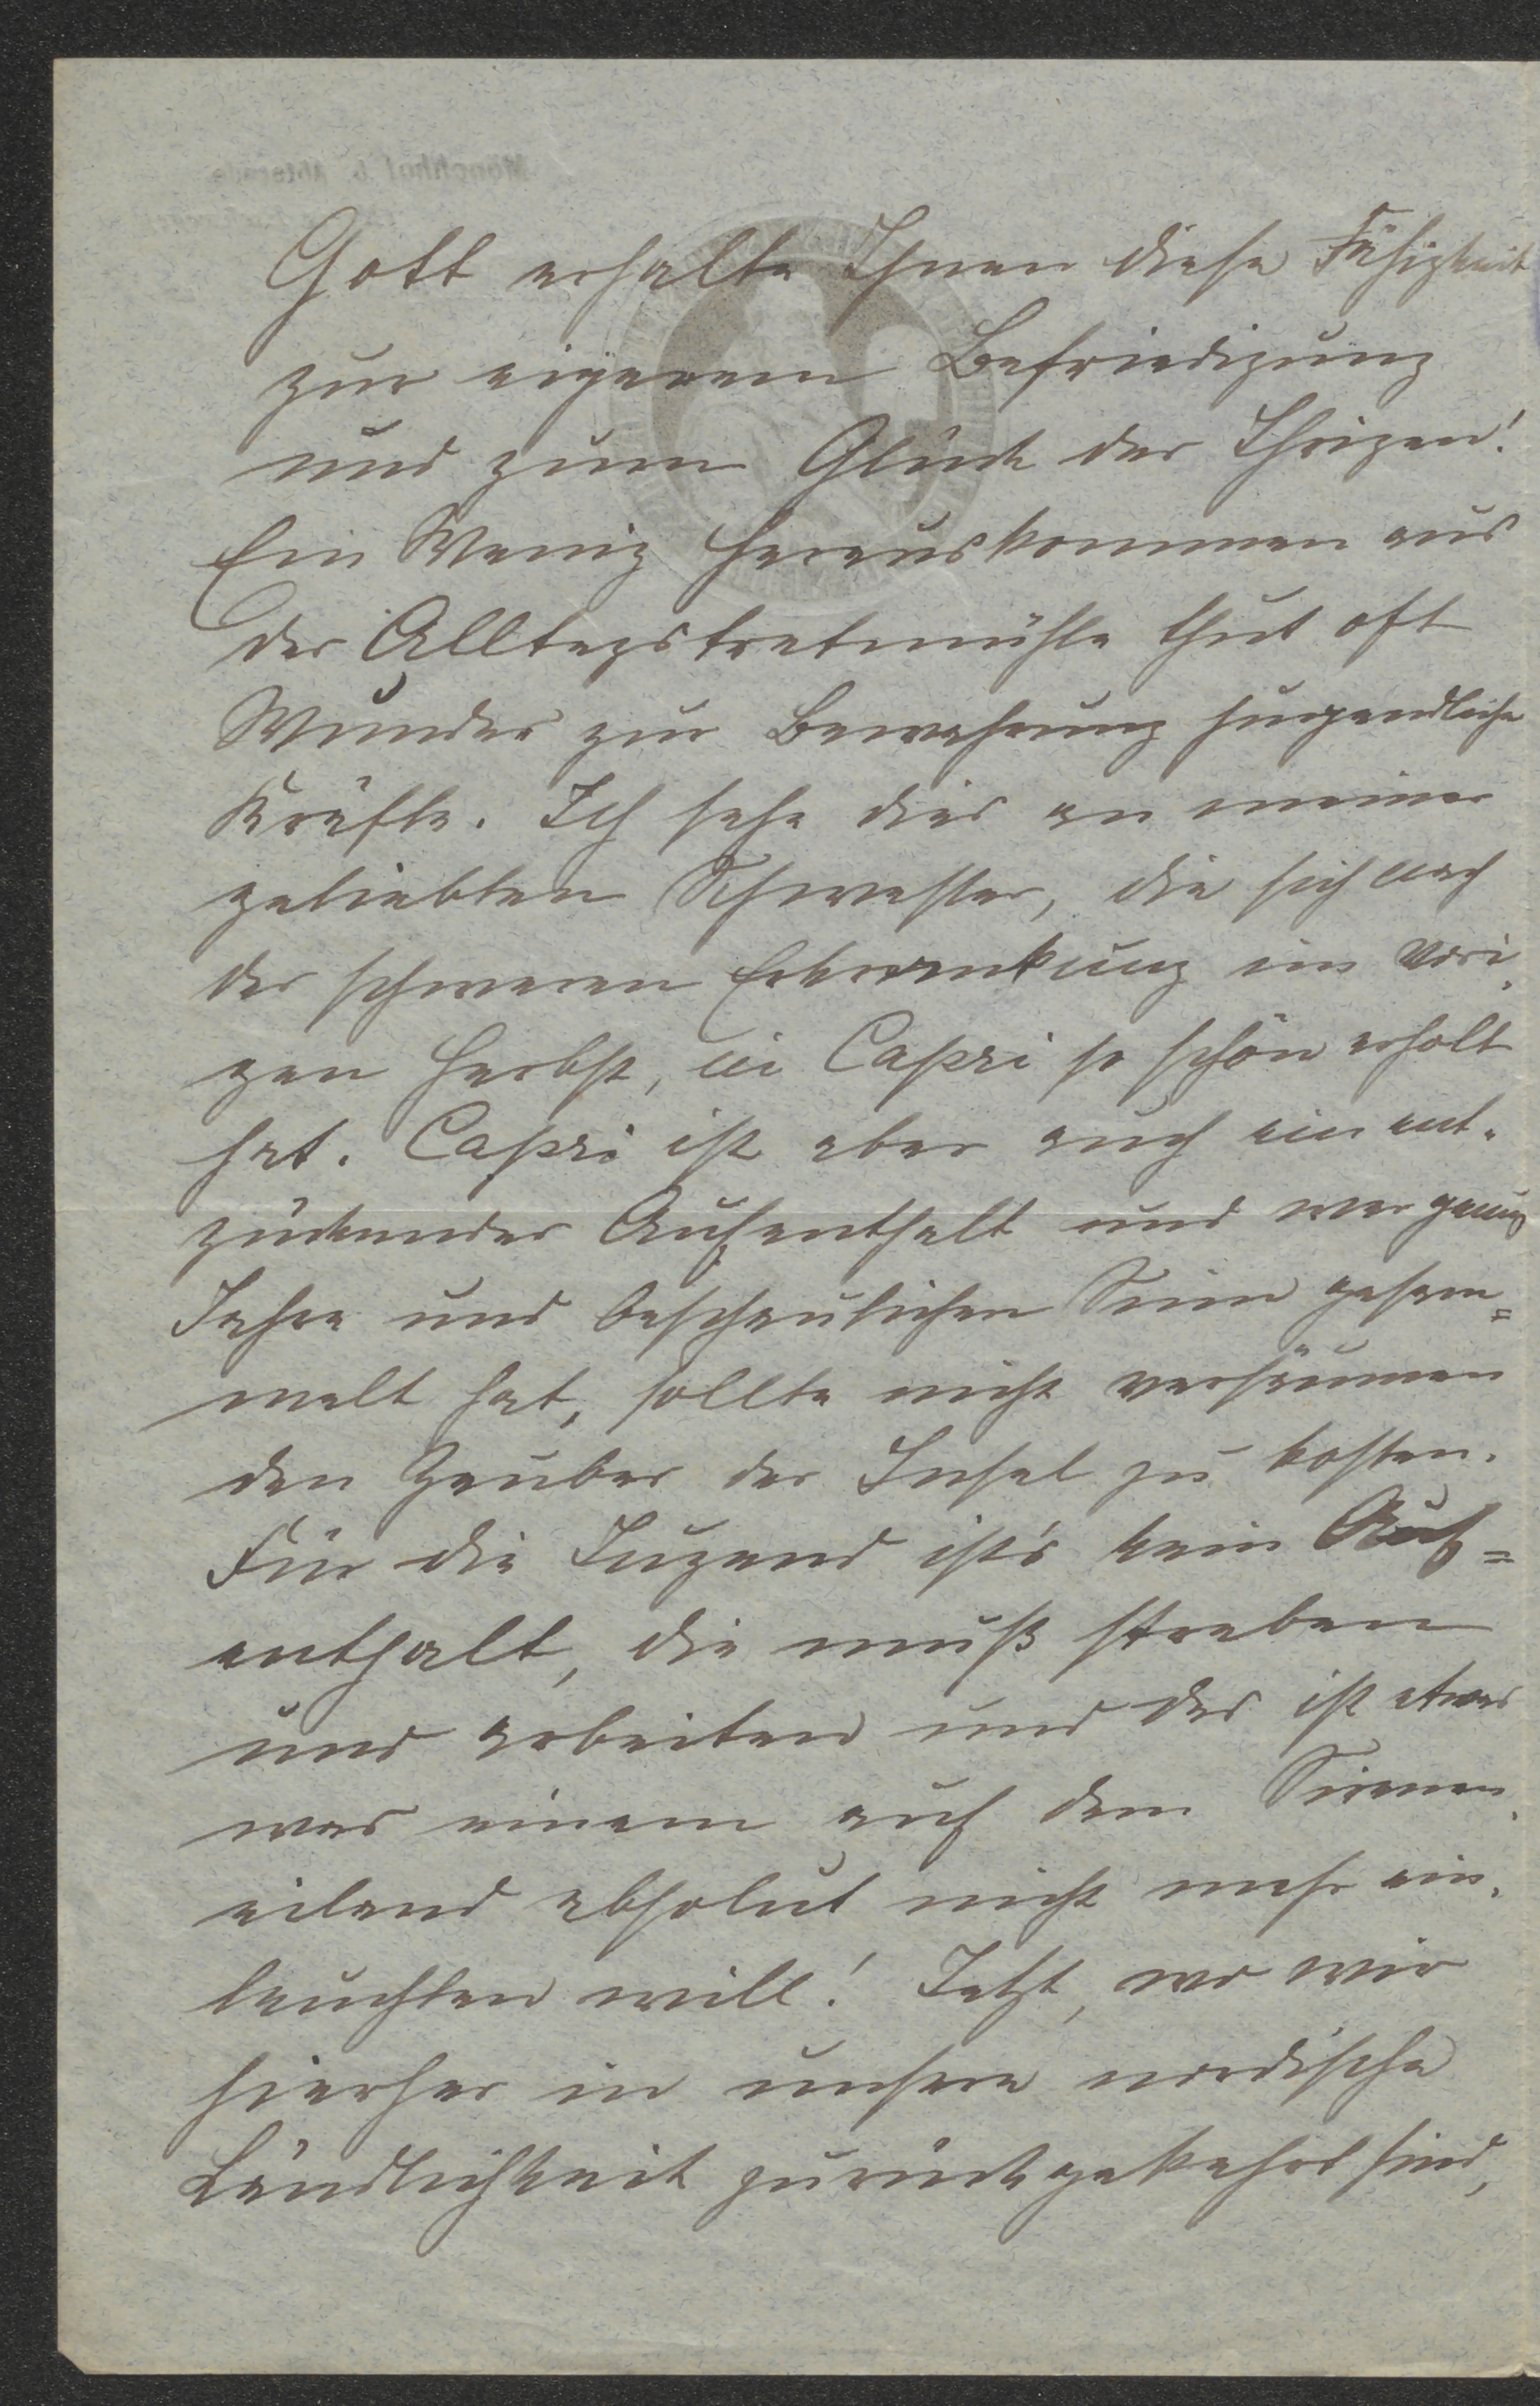 Gott erhalte Ihnen diese Fähigkeit
zur eigenen Befriedigung
und zum Glück der Ihrigen!
Ein Wenig Herauskommen aus
der Alltagstretmühle thut oft
Wunder zur Bewahrung jugendlicher
Kräfte. Ich sehe dies an meiner
geliebten Schwester, die sich nach
der schweren Erkrankung im vori-
gen Herbst, in Capri so schön erholt
hat. Capri ist aber auch ein ent-
zückender Aufenthalt und wer genug
Jahre und beschaulichen Sinn gesam=
melt hat, sollte nicht versäumen
den Zauber der Insel zu kosten.
Für die Jugend ist's kein Auf=
enthalt, die muß streben
und arbeiten und das ist etwas
was einem auf dem Sirenen-
eiland absolut nicht mehr ein-
leuchten will! Jetzt, wo wir
hierher in unsere nordische
Ländlichkeit zurückgekehrt sind,